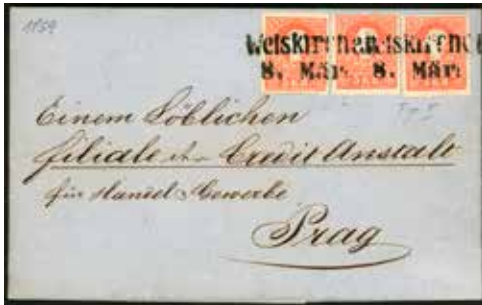 1859
Weiskirchen Weiskirchen
8. Mär. 8. Mär.
Typ I
Einem Löblichen
Filiale der Credit Anstalt
für Handel & Gewerbe
Prag